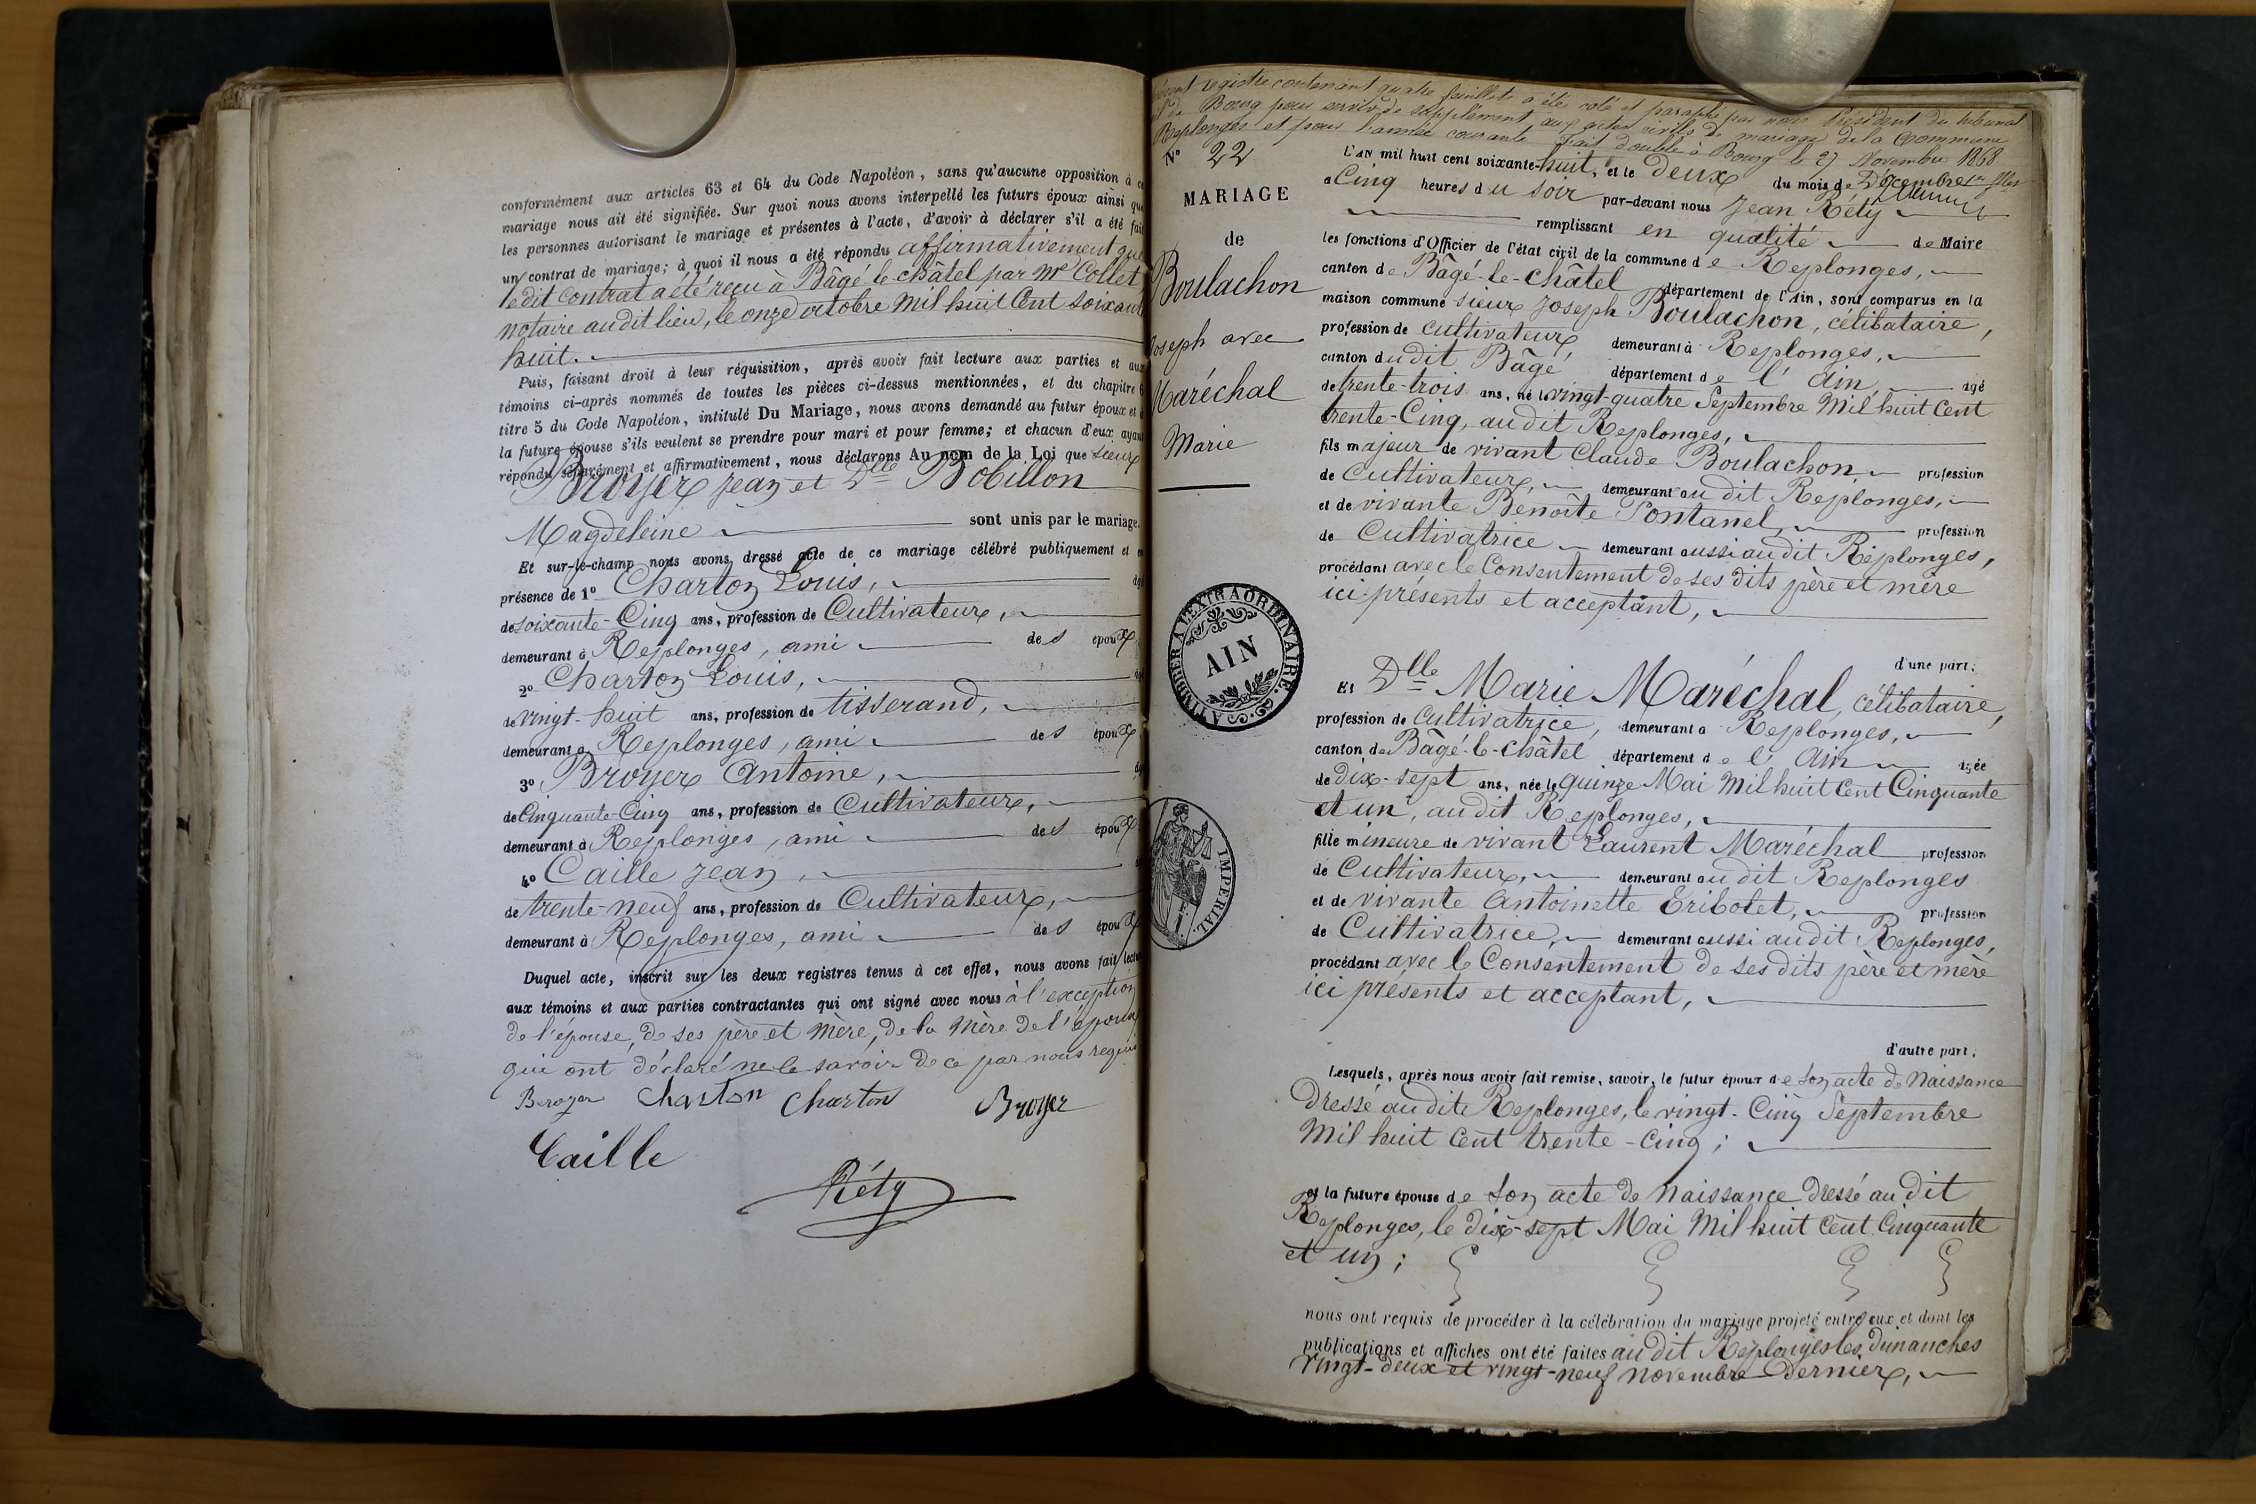 conformément aux articles 63 et 64 du Code Napoléon, sans qu'aucune opposition à ce
mariage nous ait été signifiée. Sur quoi nous avons interpellé les futurs époux ainsi que
les personnes autorisant le mariage et présentes à l'acte, d'avoir à déclarer s'il a été fait
un contrat de mariage; à quoi il nous a été répondu affirmativement que
ledit Contrat a été reçu à Bâgé le châtel par Me Collet
notaire audit lieu, le onze octobre Mil huit Cent Soixante
huit.
Puis, faisant droit à leur réquisition, après avoir fait lecture aux parties et aux
témoins ci-après nommés de toutes les pièces ci-dessus mentionnées, et du chapitre 6
titre 5 du Code Napoléon, intitulé Du Mariage, nous avons demandé au futur époux et à
la future épouse s'ils veulent se prendre pour mari et pour femme; et chacun d'eux ayant
répondu séparément et affirmativement, nous déclarons Au nom de la Loi que sieur
Broyer Jean et Dlle Bobillon
Magdeleine sont unis par le mariage.
Et sur-le-champ nous avons dressé acte de ce mariage célébré publiquement et en
présence de 1° Charton Louis, âgé
de soixante-Cinq ans, profession de Cultivateur,
demeurant à Replonges, ami des époux
2° Charton Louis, âgé
de vingt-huit ans, profession de tisserand,
demeurant à Replonges, ami des époux
3° Broyer Antoine, âgé
de Cinquante-Cinq ans, profession de Cultivateur,
demeurant à Replonges, ami des époux
4° Caille Jean,
de trente-neuf ans, profession de Cultivateur,
demeurant à Replonges, ami des époux
Duquel acte, inscrit sur les deux registres tenus à cet effet, nous avons fait lecture
aux témoins et aux parties contractantes qui ont signé avec nous à l'exception
de l'épouse, de ses père et mère, de la Mère de l'époux
qui ont déclaré ne le savoir de ce par nous requis
Broyer Charton Charton Broyer
Caille
Réty
registre contenant quatre feuillets a été coté et paraphé par nous Président du tribunal
de Bourg pour servir de supplément aux actes civils de mariage de la Commune
Replonges et pour l'année courante fait double à Bourg le 27 Novembre 1868
N° 22
MARIAGE
de
Boulachon
Joseph avec
Maréchal
Marie
A TIMBRER A L'EXTRAORDINAIRE.
AIN
IMPERIAL.
L'AN mil huit cent soixante-huit, et le deux du mois de Décembre
a Cinq heures du soir par-devant nous Jean Réty
remplissant en qualité de Maire
les fonctions d'Officier de l'état civil de la commune de Replonges,
canton de Bâgé-le-châtel département de l'Ain, sont comparus en la
maison commune sieur Joseph Boulachon, célibataire,
profession de cultivateur demeurant à Replonges,
canton dudit Bâgé département de l'Ain âgé
de trente-trois ans, né le vingt-quatre Septembre Mil huit Cent
trente-Cinq, audit Replonges,
fils majeur de vivant Claude Boulachon profession
de Cultivateur, demeurant audit Replonges,
et de vivante Benoîte Pontanel, profession
de Cultivatrice demeurant aussi audit Replonges,
procédant avec le Consentement de ses dits père et mère
ici présents et acceptant,
d'une part;
Et Dlle Marie Maréchal, célibataire,
profession de Cultivatrice, demeurant a Replonges,
canton de Bâgé-le-châtel département de l'Ain âgée
de dix-sept ans, née le quinze Mai Mil huit Cent Cinquante
et un, audit Replonges,
fille mineure de vivant Laurent Maréchal profession
de Cultivateur, demeurant audit Replonges
et de vivante Antoinette Eribolet, profession
de Cultivatrice, demeurant aussi audit Replonges,
procédant avec le Consentement de ses dits père et mère
ici présents et acceptant,
d'autre part;
Lesquels, après nous avoir fait remise, savoir, le futur époux de son acte de Naissance
Dressé audit Replonges, le vingt-Cinq Septembre
Mil huit Cent trente-Cinq;
et la future épouse de son acte de naissance dressé audit
Replonges, le dix-sept Mai Mil huit Cent Cinquante
et un;
nous ont requis de procéder à la célébration du mariage projeté entre eux et dont les
publications et affiches ont été faites audit Replonges les dimanches
vingt-deux et vingt-neuf novembre Dernier,